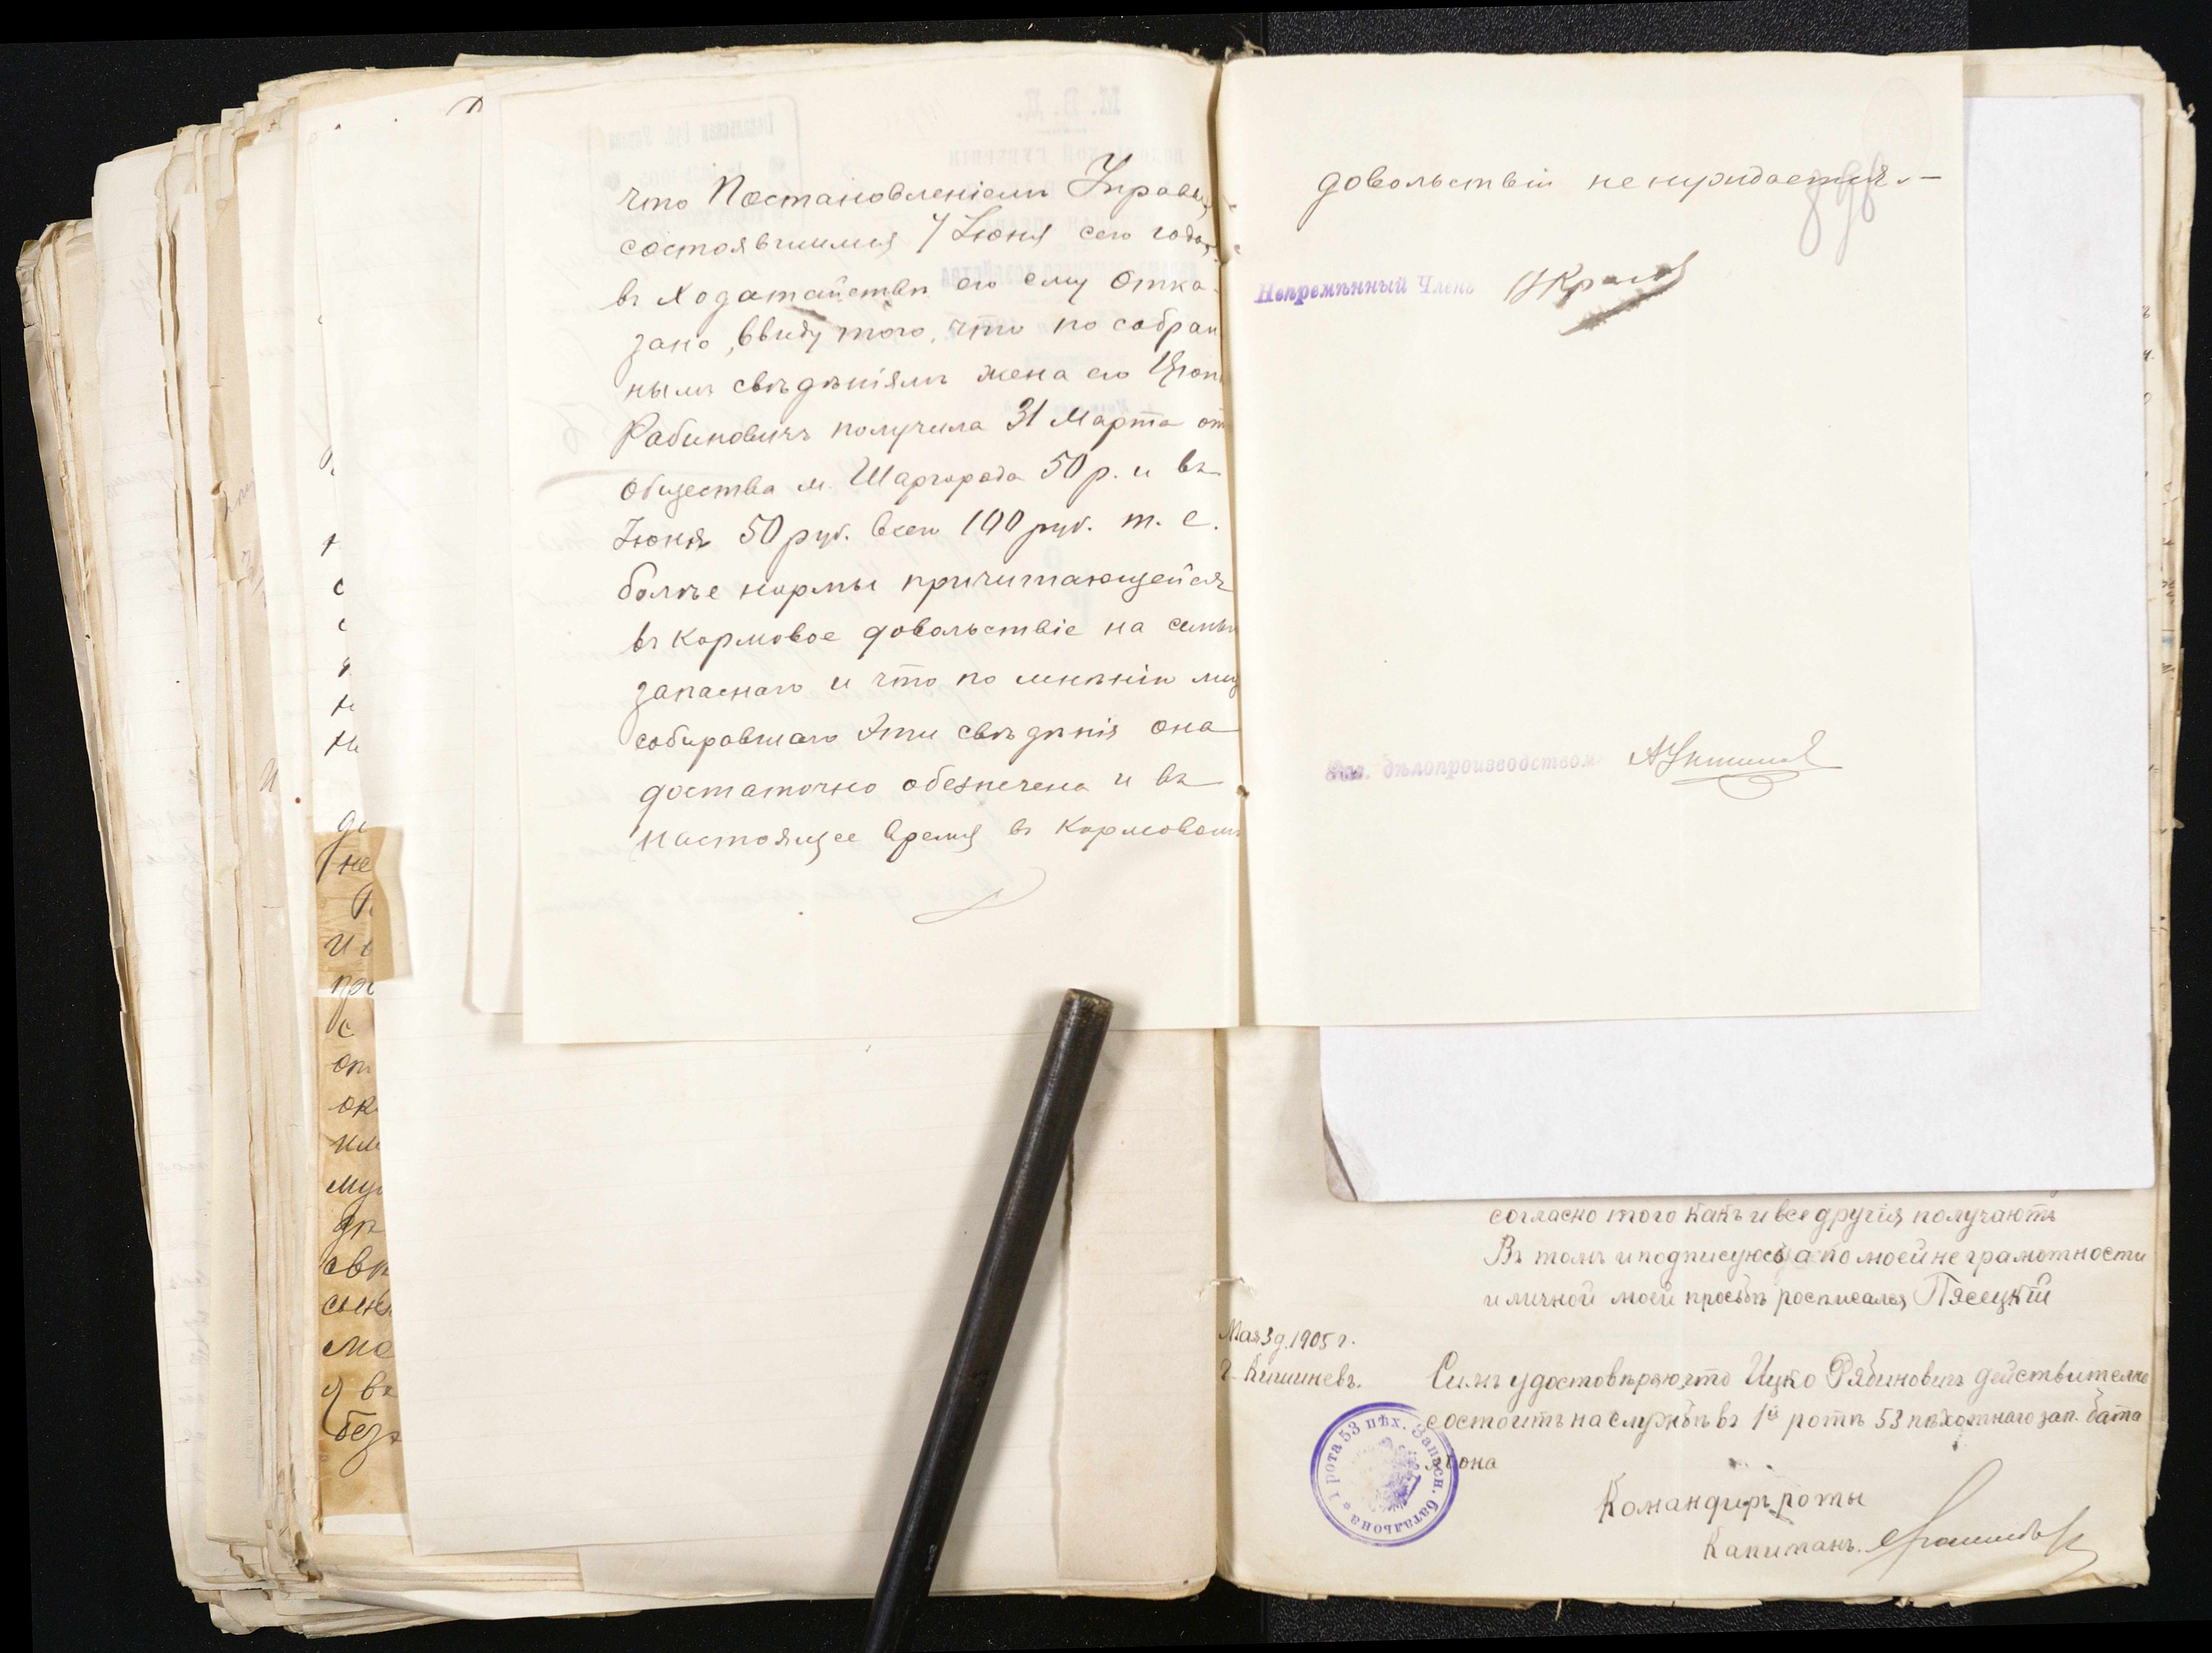 что Постановленіемъ Управы,
состоявшимся 7 Іюня сего года,
въ Ходатайствѣ его ему отка-
зано, ввиду того, что по собран
нымъ свѣдѣніямъ жена его
Рабиновичъ получила 31 Марта от
общества м. Шаргорода 50 р. и въ
Іюнѣ 50 руб. всего 100 руб. т. е.
болѣе нормы причитающейся
въ кормовое довольствіе на семью
запаснаго и что по мнѣнію лиц
собиравшаго эти свѣдѣнія она
достаточно обезпечена и въ
настоящее время въ кормовомъ
довольствіи не нуждается. —
898
Непремѣнный Членъ
Зав. дѣлопроизводствомъ
согласно того какъ и все другія получаютъ
Въ томъ и подписуюсь а по моей не грамотности
и личной моей просьбѣ росписался Пясецкій
Мая 3 д. 1905 г.
г. Кишиневъ.
Симъ удостовѣряю, что Ицко Рабиновичъ действително
состоитъ на службѣ въ 1й ротѣ 53 пѣхотнаго зап. бата
льона
Командиръ роты
Капитанъ.
1 рота 53 пѣх. Запасн. батальона